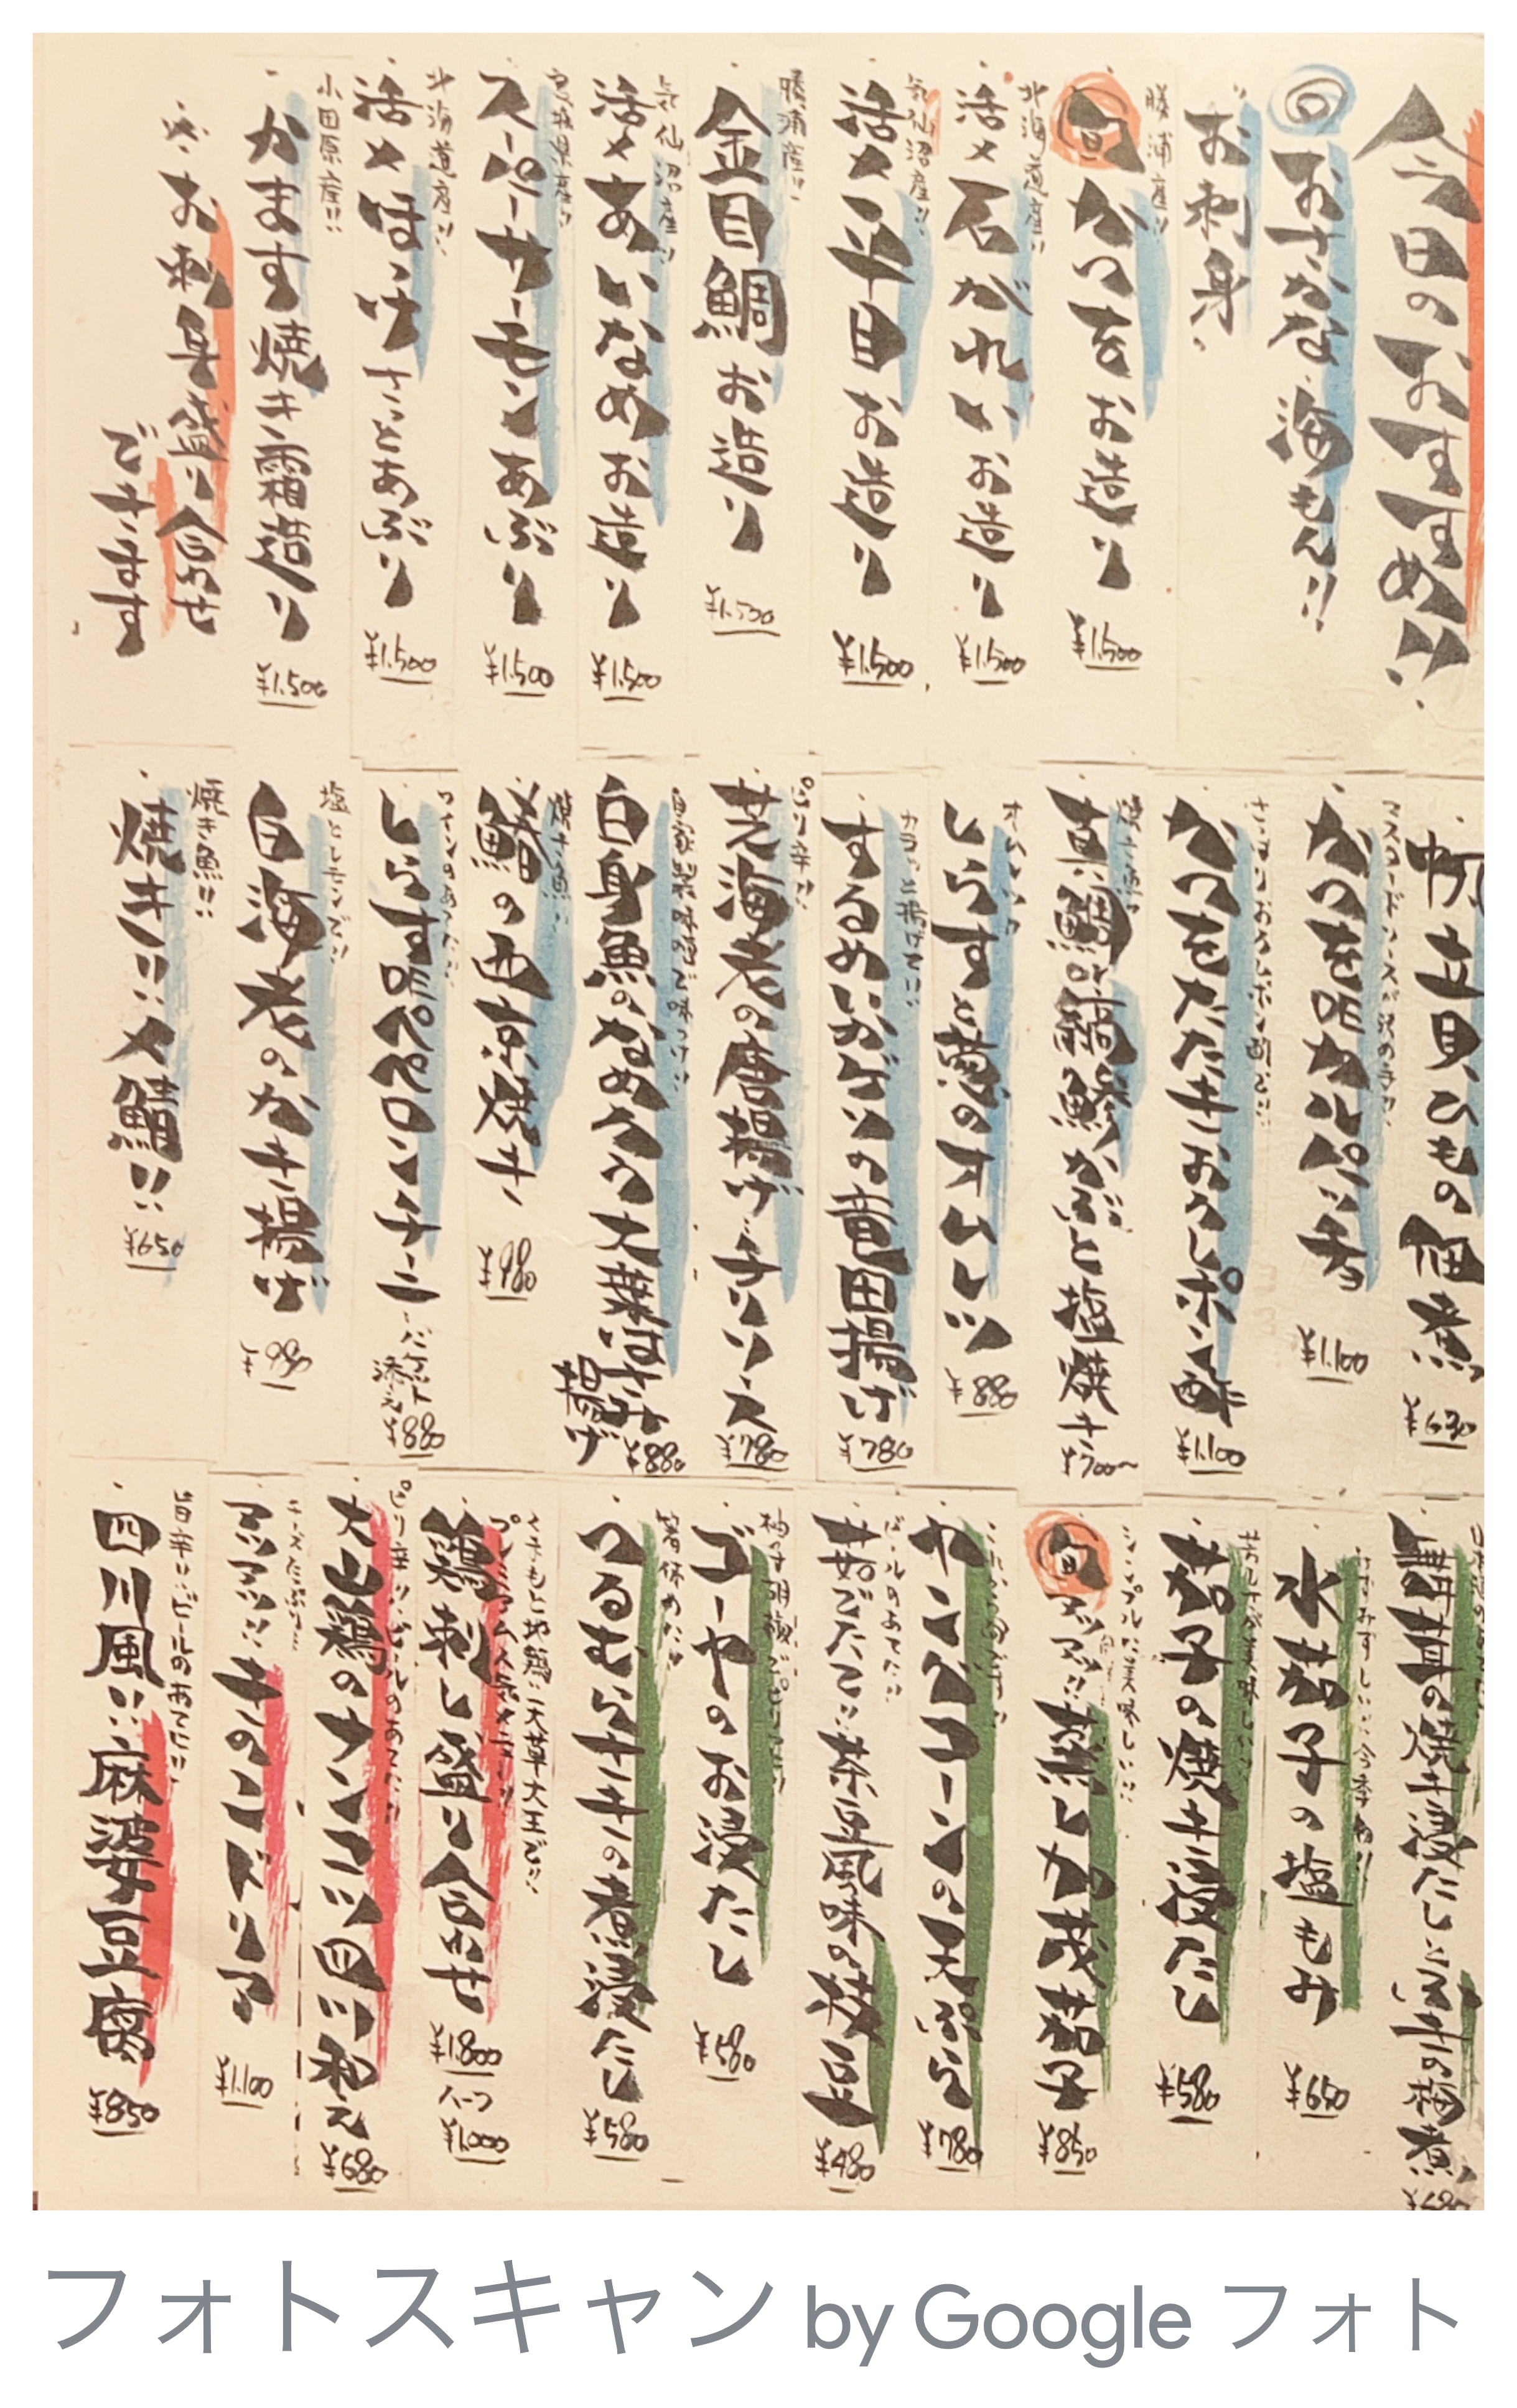 今日のおすすめ!!
おさかな 海もん!!
お刺身
勝浦産!!
旬 かつをお造り
¥1,500
北海道産!!
活〆石がれいお造り
¥1,500
気仙沼産!!
活〆平目お造り
¥1,500
勝浦産!!
金目鯛お造り
¥1,500
気仙沼産!!
活〆あいなめお造り
¥1,500
宮城県産!!
スーパーサーモンあぶり
¥1,500
北海道産!!
活〆ほっけさっとあぶり
¥1,500
小田原産!!
かます焼き霜造り
¥1,500
お刺身盛り合わせ
できます
帆立貝ひもの佃煮
¥630
かつをのカルパッチョ
¥1,100
かつをたたきおろしポン酢
¥1,100
焼き魚!!
真鯛のかぶと塩焼き
¥700~
しらすと葱のオムレツ
¥880
カラッと揚げた!!
するめいかげその竜田揚げ
¥780
ぷり辛!!
芝海老の唐揚げ チリソース
¥780
自家製味噌で味つけ!!
白身魚のなめろう大葉はさみ揚げ
¥880
焼き魚!!
鰆の西京焼き
¥980
ワインのあてに!!
しらすペペロンチーニ
バケット添え
¥880
塩とレモンで!!
白海老のかき揚げ
¥980
焼き魚!!
焼き!!〆鯖!!
¥650
みずみずしい!!今季初!!
水茄子の塩もみ
¥650
茄子の焼き浸たし
¥580
シンプルに美味しい!!
旬 アツアツ!!蒸し加茂茄子
¥850
ヤングコーンの天ぷら
¥780
ビールのあてに!!
茹でたて!!茶豆風味の枝豆
¥480
柚子胡椒ぴりっと!!
ゴーヤのお浸たし
¥580
箸休めに!!
つるむらさきの煮浸たし
¥580
さつもと地鶏!!天草大王で!!
鶏刺し盛り合わせ
¥1,800
ハーフ
¥1,000
ピリ辛!!ビールのあてに!!
大山鶏のナンコツ四川和え
¥680
チーズたっぷり!!
アツアツ!!チキンドリア
¥1,100
旨辛!!ビールのあてに!!
四川風!!麻婆豆腐
¥850
フォトスキャン by Google フォト